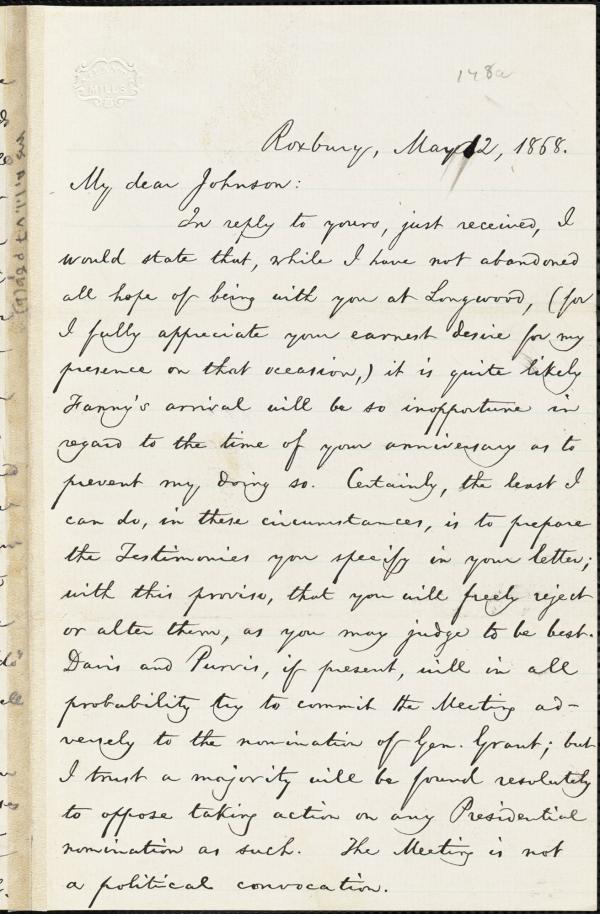 148a
MILLS
Roxbury, May 12, 1868.
My dear Johnson:
In reply to yours, just received, I
would state that, while I have not abandoned
all hope of being with you at Longwood, (for
I fully appreciate your earnest desire for my
presence on that occasion,) it is quite likely
Fanny's arrival will be so inopportune in
regard to the time of your anniversary as to
prevent my doing so. Certainly, the least I
can do, in these circumstances, is to prepare
the Testimonies you specify in your letter;
with this proviso, that you will freely reject
or alter them, as you may judge to be best.
Davis and Purvis, if present, will in all
probability try to commit the Meeting ad-
versely to the nomination of Gen. Grant; but
I trust a majority will be found resolutely
to oppose taking action on any Presidential
nomination as such. The Meeting is not
a political convocation.